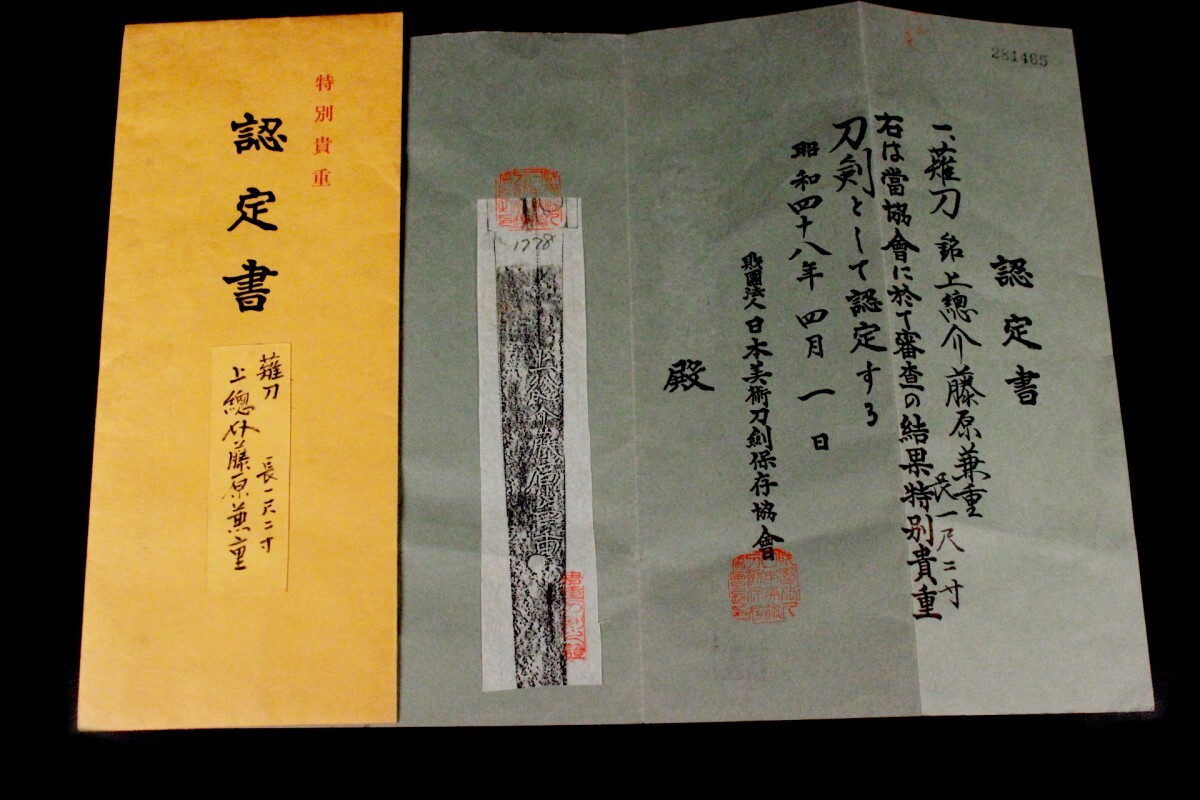 281465
認定書
一、薙刀 銘 上總介藤原兼重
長一尺二寸
右は當協會に於て審査の結果特別貴重
刀剣として認定する
昭和四十八年四月一日
財團法人 日本美術刀剣保存協會
殿
1778
特別貴重
認定書
薙刀 長一尺二寸
上總介藤原兼重